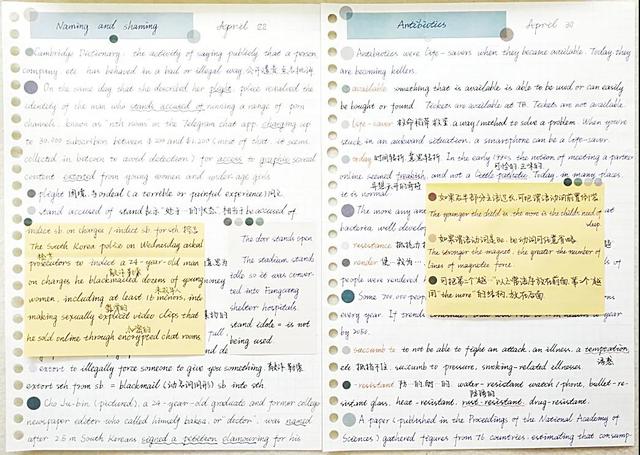 Naming and shaming
April 22
Cambridge Dictionary: the activity of saying publicly that a person
company, etc. has behaved in a bad or illegal way
On the same day that she described her plight, police revealed the
identity of the man who stands accused of running a range of porn
channels, known as "nth room" in the Telegram chat app charging up
to 30,000 subscribers between $200 and $1,200 (most of that, it seems
collected in bitcoin to avoid detection) for access to graphic sexual
content extorted from young women and under-age girls
plight 困境, 与 ordeal (a terrible or painful experience) 同义
stand accused of stand表示"处于…的状态" 相当于 be accused of
indict sb on charges / indict sb for sth 控告
The South Korea police on Wednesday asked
prosecutors to indict a 24-year-old man
敲诈勒索
on charges he blackmailed dozens of young
women, including at least 16 minors, into
making sexually explicit video clips that
加密的
he sold online through encrypted chat rooms.
The door stands open
The stadium stands
idle so it was conver-
ted into Fangcang
shelter hospitals.
stand idle = is not
being used
extort to illegally force someone to give you something 敲诈勒索
extort sth from sb = blackmail (动名词同形) sb into sth
Cho Ju-bin (pictured), a 24-year-old graduate and former college
newspaper editor who called himself baksa, or doctor", was named
after 2.5 m South Koreans signed a petition clamouring for his
Antibiotics
April 30
Antibiotics were life-savers when they became available. Today, they
are becoming killers.
available something that is available is able to be used or can easily
be bought or found Tickets are available at TB. Tickets are not available.
life-saver 救命稻草 救星 a way/method to solve a problem When you're
stuck in an awkward situation, a smartphone can be a life-saver.
today 时间转折 意思转折 In the early 1990s the notion of meeting a partner
online seemed freakish, and not a little pathetic. Today, in many places,
it is normal
The more any
bacteria will develo
resistance 抵抗力
render 使…成为…
people were rendered
Some 700,000 peop
every year. If trends
by 2050.
如果右半部分主语过长,可把谓语动词前置倒装
The younger the child is, the more is the child's need of
sleep.
如果谓语动词是be, be动词可任意省略
The stronger the magnet, the greater the number of
lines of magnetic force.
可把第二个"越"以正常语序放在前面, 第一个越
用"the more"的结构放在后面
succumb to to not be able to fight an attack, an illness, a temptation
诱惑
etc 抵挡不住 succumb to pressure, smoking-related illnesses
-resistant 防…的, 耐…的 water-resistant watch/phone, bullet-re-
防锈的
sistant glass, heat-resistant, rust-resistant, drug-resistant.
A paper (published in the Proceedings of the National Academy of
Sciences) gathered figures from 76 countries, estimating that consump-